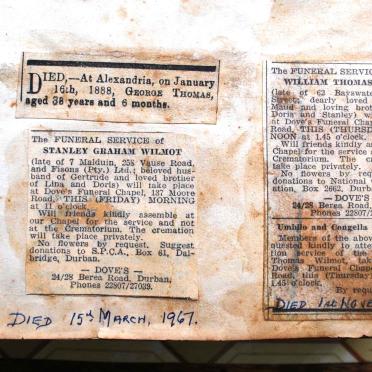 DIED,—At Alexandria, on January
16th, 1888, GEORGE THOMAS,
aged 38 years and 6 months.
The FUNERAL SERVICE of
STANLEY GRAHAM WILMOT
(late of 7 Malduin, 258 Vause Road,
and Fisons (Pty.) Ltd.; beloved hus-
band of Gertrude and loved brother
of Lina and Doris) will take place
at Dove's Funeral Chapel, 137 Moore
Road, THIS (FRIDAY) MORNING
at 11 o'clock.
Will friends kindly assemble at
our Chapel for the service and not
at the Crematorium. The cremation
will take place privately.
No flowers by request. Suggest
donations to S.P.C.A., Box 61, Dal-
bridge, Durban.
— DOVE'S —
24/28 Berea Road, Durban.
Phones 22807/27039.
DIED 15th MARCH, 1967.
The FUNERAL SERVIC
WILLIAM THOMAS
(late of 62 Bayswat
Street, dearly loved
Maud and loving broth
Doris and Stanley) w
at Dove's Funeral Chap
Road, THIS (THURSD
NOON at 1.45 o'clock.
Will friends kindly
Chapel for the service
Crematorium. The cr
take place privately.
No flowers by req
donations to National
ation, Box 2662, Durba
— DOVE'S
24/28 Berea Road,
Phones 22807/2
Umbilo and Congella
Members of the above
quested kindly to atten
tion service of the
Thomas Wilmot, take
Dove's Funeral Chape
Road, this (Thursday)
1.45 o'clock.
DIED 1st NOVE